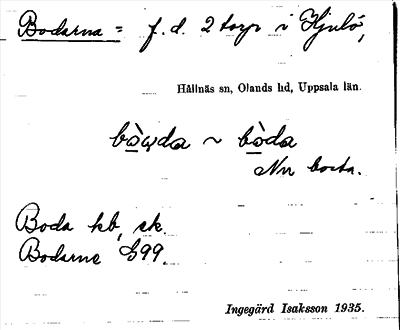 Bodarna = f. d. 2 torp i Hjulö,
Hållnäs sn, Olands hd, Uppsala län.
bò̱wda ~ bò̱da
Nu borta.
Boda kb, sk.
Bodarne G99.
Ingegärd Isaksson 1935.